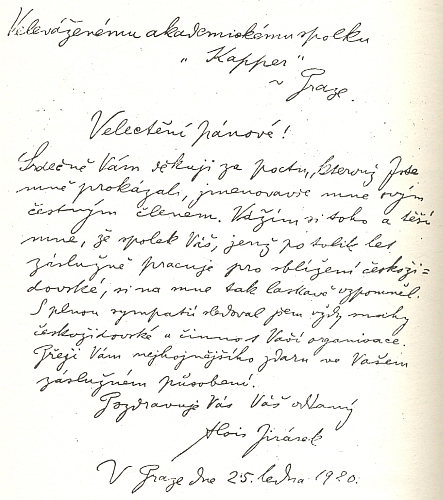 Veleváženému akademickému spolku
„Kapper“
v Praze.
Velectění pánové!
Srdečně Vám děkuji za poctu, kterouž jste
mně prokázali, jmenovavše mne svým
čestným členem. Vážím si toho a těší
mne, že spolek Váš, jenž po tolik let
záslužně pracuje pro sblížení českoži=
dovské, si na mne tak laskavě vzpomněl.
S plnou sympatií sledoval jsem vždy snahy
českožidovské a činnost Vaší organisace.
Přeji Vám nejhojnějšího zdaru ve Vašem
záslužném působení.
Pozdravuje Vás Váš oddaný
Alois Jirásek
V Praze dne 25. ledna 1920.